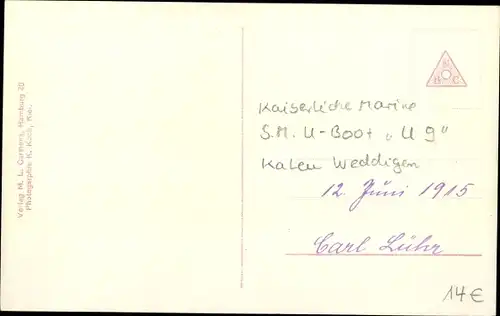 Verlag M. L. Carstens, Hamburg 20
Photographie R. Kunst, Kiel.
N
B C
Kaiserliche Marine
S.M. U-Boot „U 9"
Kaleu Weddigen
12. Juni 1915
Carl Lühr
14€